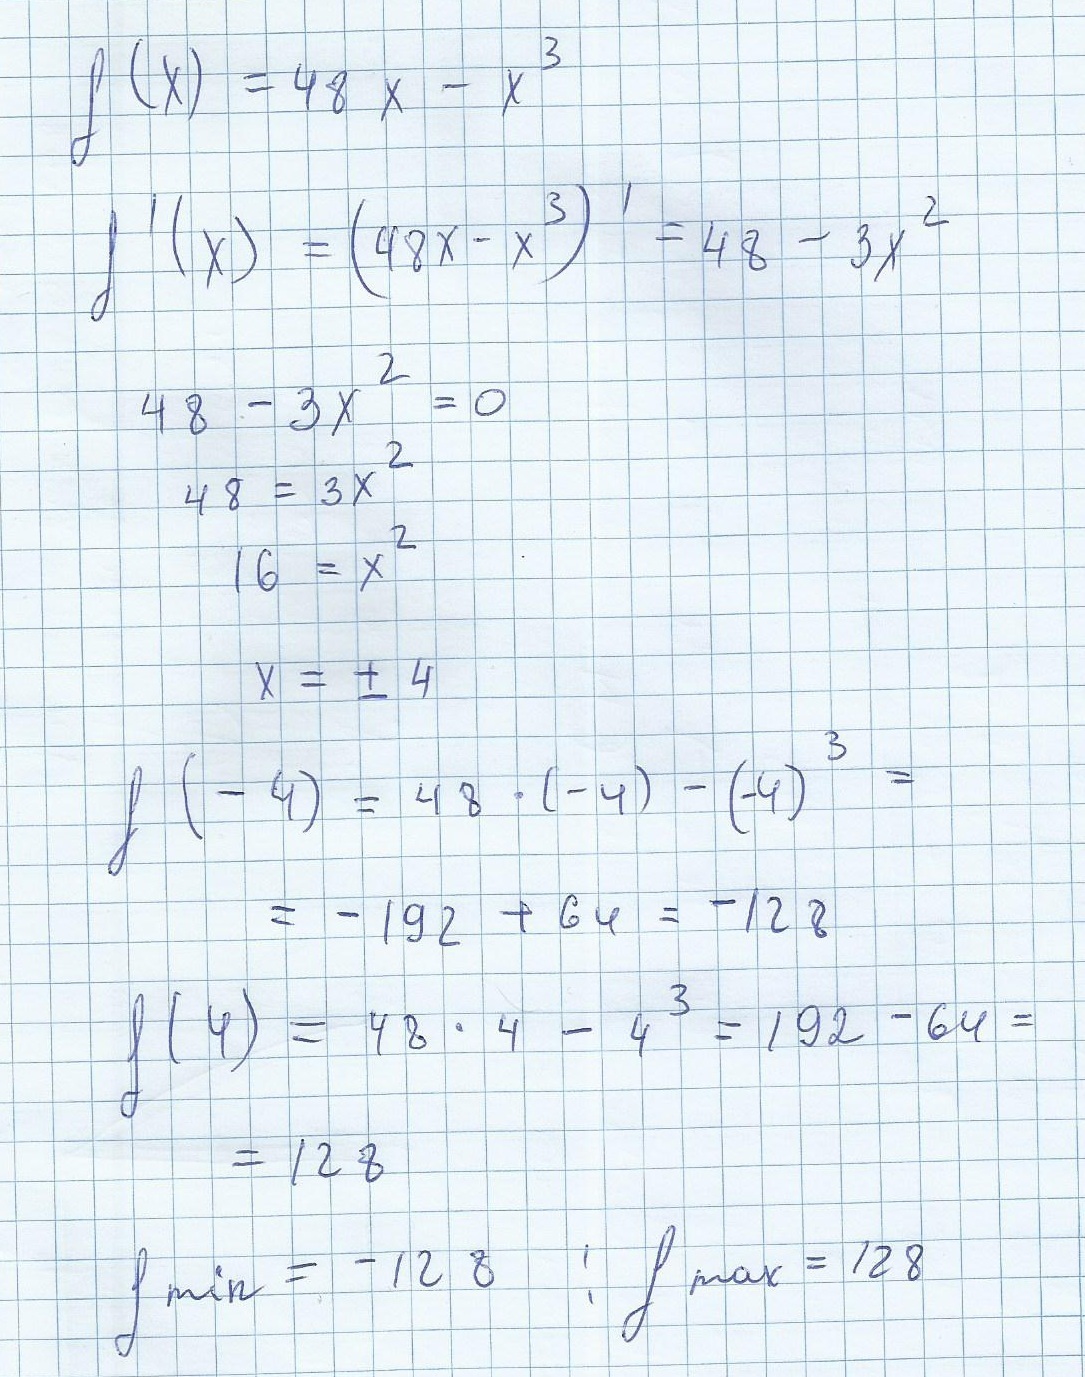 f(x) = 48x - x³
f'(x) = (48x - x³)' = 48 - 3x²
48 - 3x² = 0
48 = 3x²
16 = x²
x = ± 4
f(-4) = 48 · (-4) - (-4)³ =
= -192 + 64 = -128
f(4) = 48 · 4 - 4³ = 192 - 64 =
= 128
f min = -128 ; f max = 128